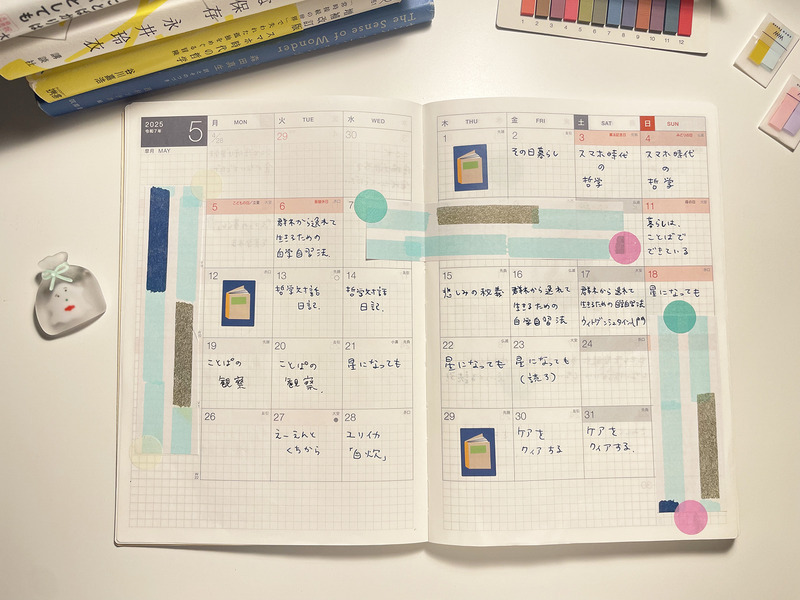 ことばかりは
としても
永井玲衣
講談社
る保存
増補改訂版
スマホ時代の哲学
谷川嘉浩
The Sense of Wonder
2025
令和7年
5
皐月 MAY
月 MON
火 TUE
水 WED
木 THU
金 FRI
土 SAT
日 SUN
29
30
1
2
その日暮らし
3
憲法記念日
スマホ時代
の
哲学
4
みどりの日
スマホ時代
の
哲学
5
こどもの日
6
振替休日
群れから逸れて
生きるための
自学自習法
7
11
暮らしは、
ことばで
できている
12
13
哲学対話
日記.
14
哲学対話
日記.
15
悲しみの秘義
16
群れから逸れて
生きるための
自学自習法
17
群れから逸れて
生きるための自学自習法
ウィトゲンシュタイン入門
18
星になっても
19
ことばの
観察
20
ことばの
観察.
21
星になっても
22
星になっても
23
星になっても
(読了)
24
26
27
えーえんと
くちから
28
ユリイカ
「自炊」
29
30
ケアを
クィアする
31
ケアを
クィアする.
1 2 3 4 5 6 7 8 9 10 11 12